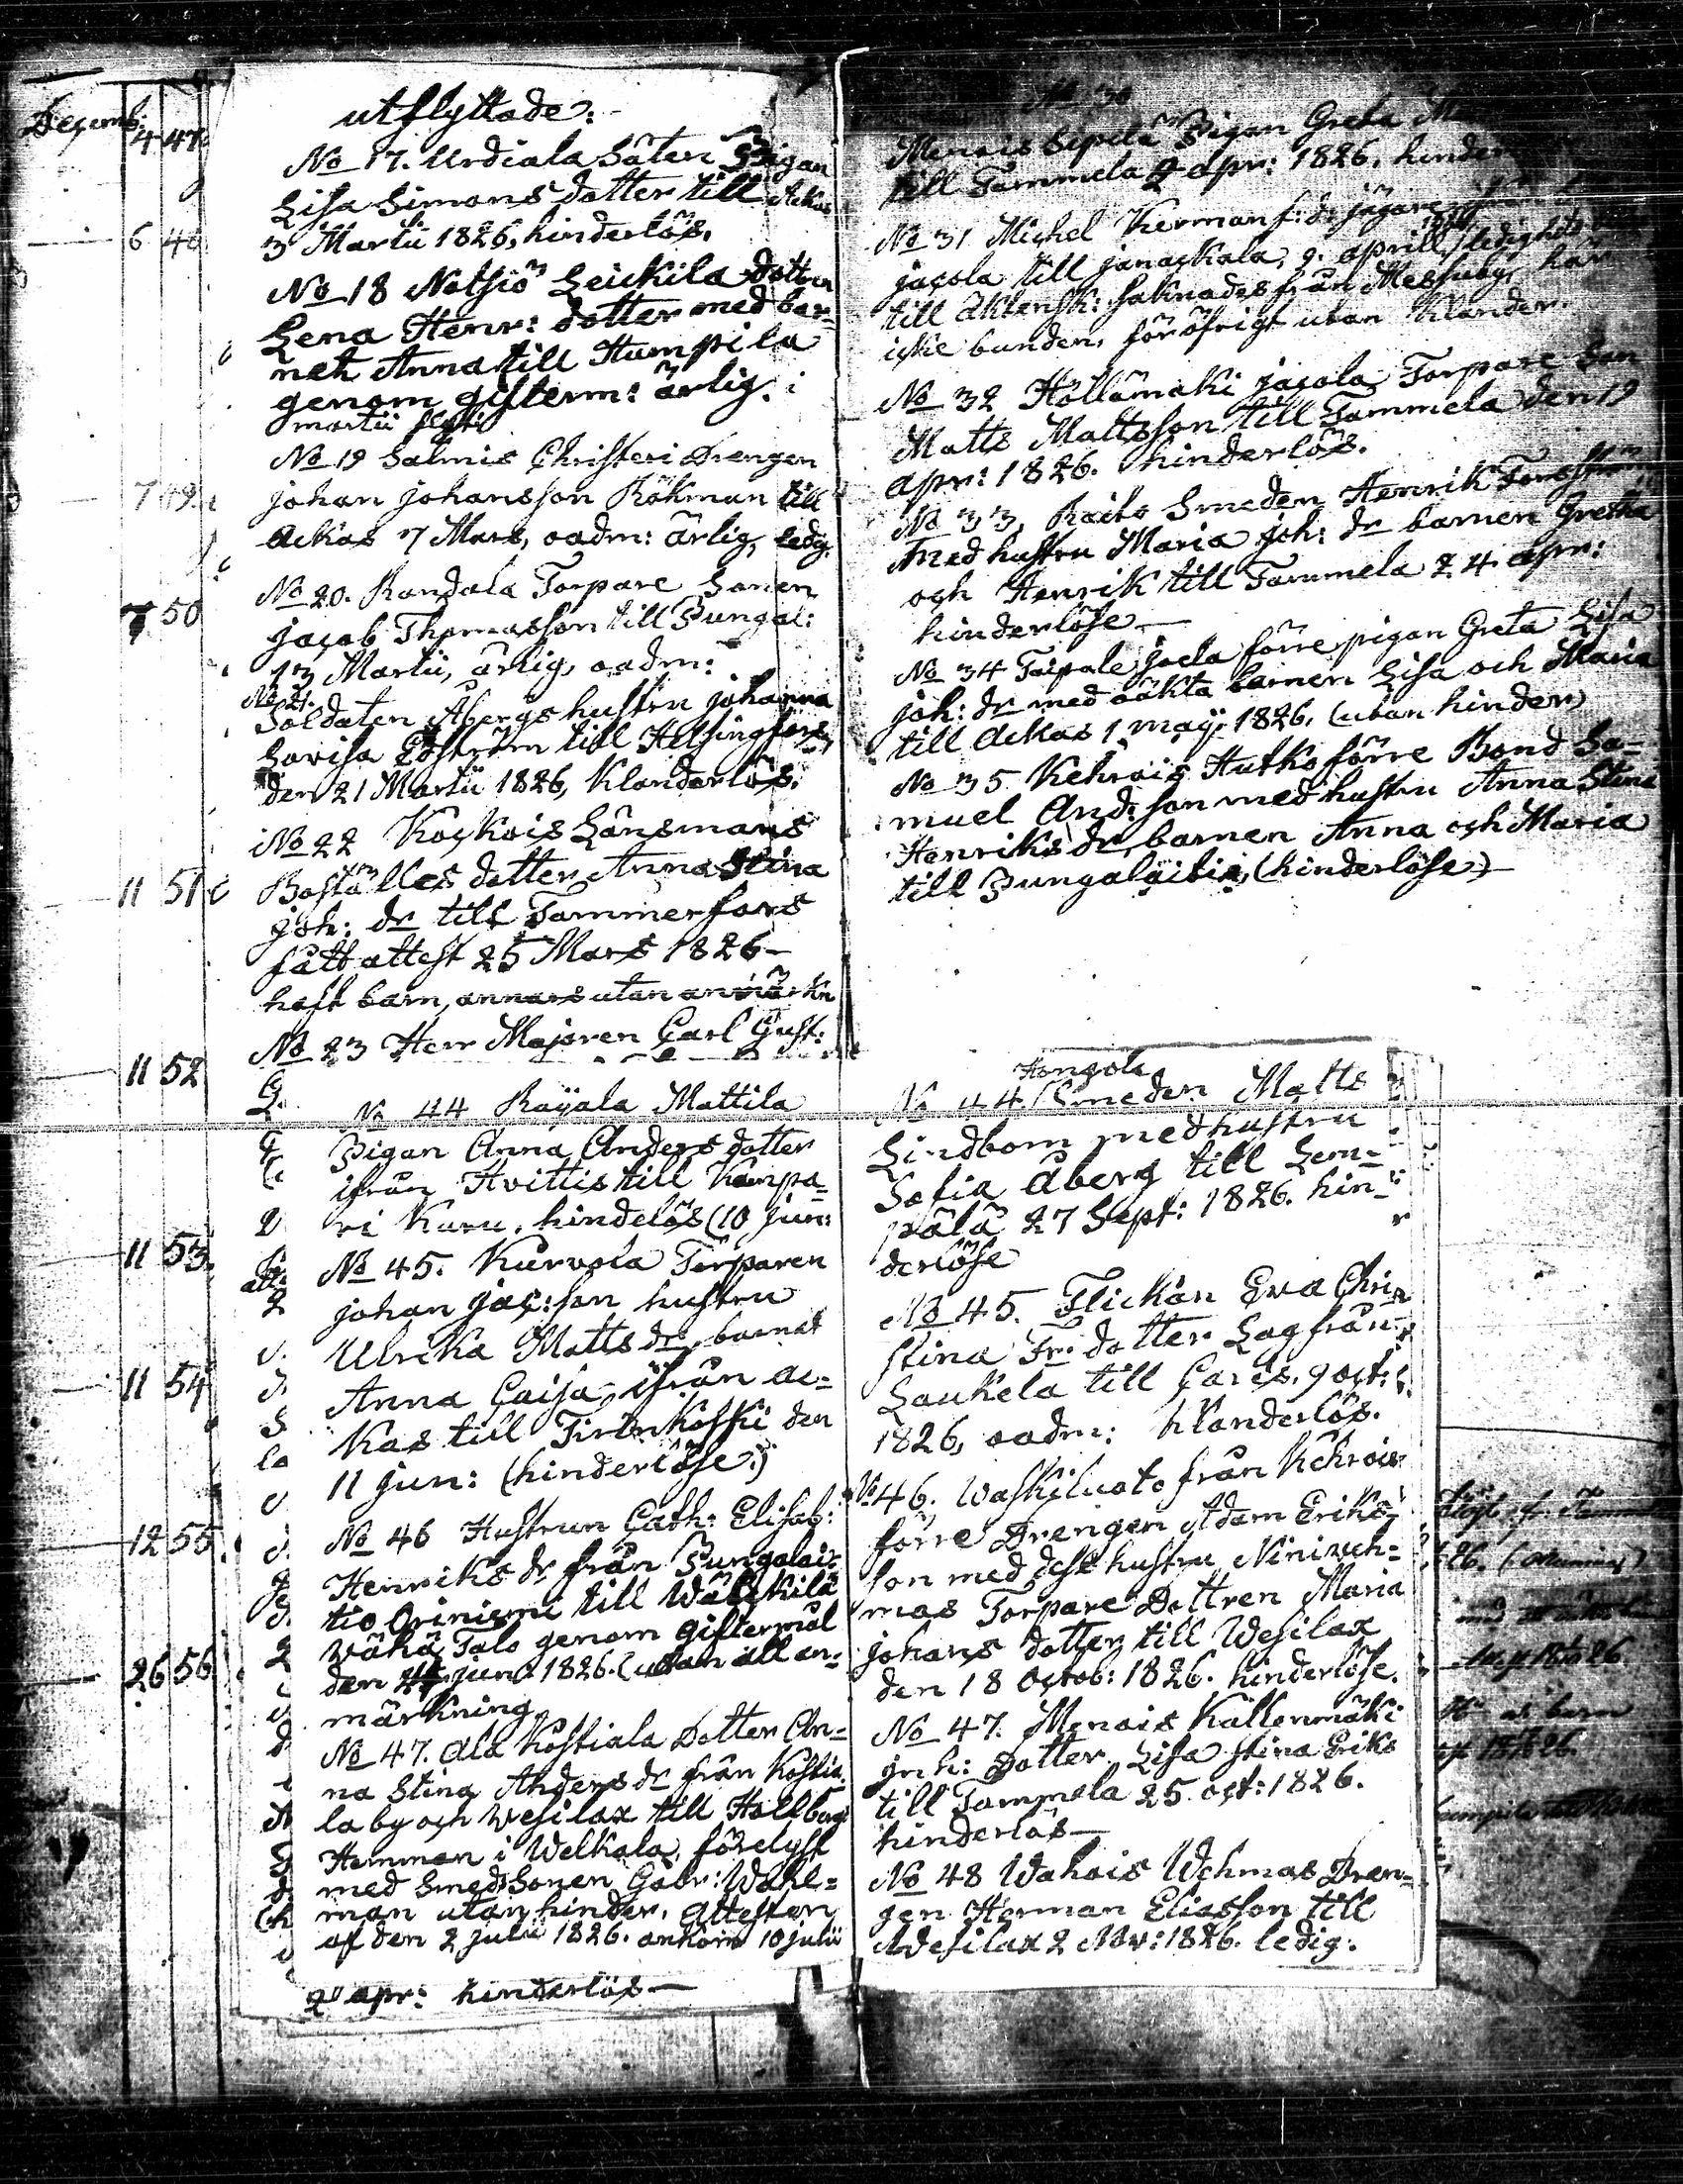 Decemb.
4 47
6 48
7 49
7 50
11 51
11 52
11 53
11 54
12 55
26 56
utflyttade:
No 17. Urdiala Säteri Pigan
Lisa Simons dotter till Ackas
3 Martii 1826, hinderlös.
No 18 Notsiö Leickila dotteren
Lena Henr: dotter med bar-
net Anna till Humpila
genom gifterm: ärlig. i
martii flytt
No 19 Salmis Christeri Drengen
johan johansson Rökman till
Ackas 7 Mars, oadm: ärlig, ledig
No 20. Randala Torpare Sonen
jacob Thomasson till Pungal:
13 Martii, ärlig, oadm:
No 21.
Soldaten Åbergs hustru johanna
Lovisa till Helsingfors,
den 21 Martii 1826, klanderlös.
No 22 Koskois Länsmans
Boställes dotter Anna Stina
joh: dr till Tammerfors
fått attest 25 Mars 1826 -
haft barn, annars utan anmärkn
No 23 Herr Majoren Carl Gust:
No 44 Rayala Mattila
Pigan Anna Anders dotter
ifrån Hvittis till Kampa-
ri Kuru. hindelös (10 jun:
No 45. Kurvola Torparen
johan jac:son hustru
Ulrika Matts dr, barnet
Anna Caisa ifrån Ac-
kas till Tirlonkoski den
11 jun: (hinderlöse.)
No 46 Hustrun Cath: Elisab:
Henriks dr från Pungalai-
tio Oriniemi till Wälkilä
Wähä Talo genom giftermål
den jun: 1826. (utan all an-
märkning
No 47. Ala Kostiala Dotter An-
na Stina Anders dr från Kostia
la by och Wesilax till Hallborgs
Hemman i Welkala, förelyst
med Smeds Sonen Gabr: Wahl=
man utan hinder. Attesten
af den 2 julii 1826. ankom 10 julii
2 apr: hinderlös -
No 30
Menois Sepelä Pigan Greta
till Tammela 2 apr: 1826. hinder
No 31 Michel Kerman f:d: jägare
jacola till janackala, 9. aprill 1826
till äktensk: saknades från Messuby, har
icke bunden. för öfrigt utan klander.
No 32 Hollämaki jacola Torpare Son
Matts Mattsson till Tammela den 19
apr: 1826. hinderlös.
No 33. Raito Smeden Henrik Forsström
med hustru Maria joh: dr barnen Gretha
och Henrik till Tammela 24. apr:
hinderlöse -
No 34 Taipale joela förre pigan Greta Lisa
joh: dr med oäkta barnen Lisa och Maria
till Ackas 1 maij 1826. (utan hinder)
No 35 Kehrois Hutko förre Bond Sa-
muel And:son med hustru Anna Stina
Henriks dr, barnen Anna och Maria
till Pungalaitio, (hinderlöse) -
Hongola
No 44. Smeden Matts
Lindbom med hustru
Sofia Åberg till Lem-
pälä 27 Sept: 1826. hin-
derlöse
No 45. Flickan Eva Chri-
stina Fr: dotter Lag från
Laukela till Caris. 9 oct:
1826, oadm: klanderlös.
No 46. Waskiluoto från Kehrois
förre Drengen Adam Eriks-
son med dess hustru Niniveh-
mas Torpare Dottren Maria
johans dotter till Wesilax
den 18 Octob: 1826. hinderlöse.
No 47. Menois Kallenmäki
inh: Dotter Lisa Stina Eriks
till Tammela 25. oct: 1826.
hinderlös -
No 48 Wahois Wehmas Dren-
gen Herman Eliasson till
Wesilax 2 Nov: 1826. ledig.